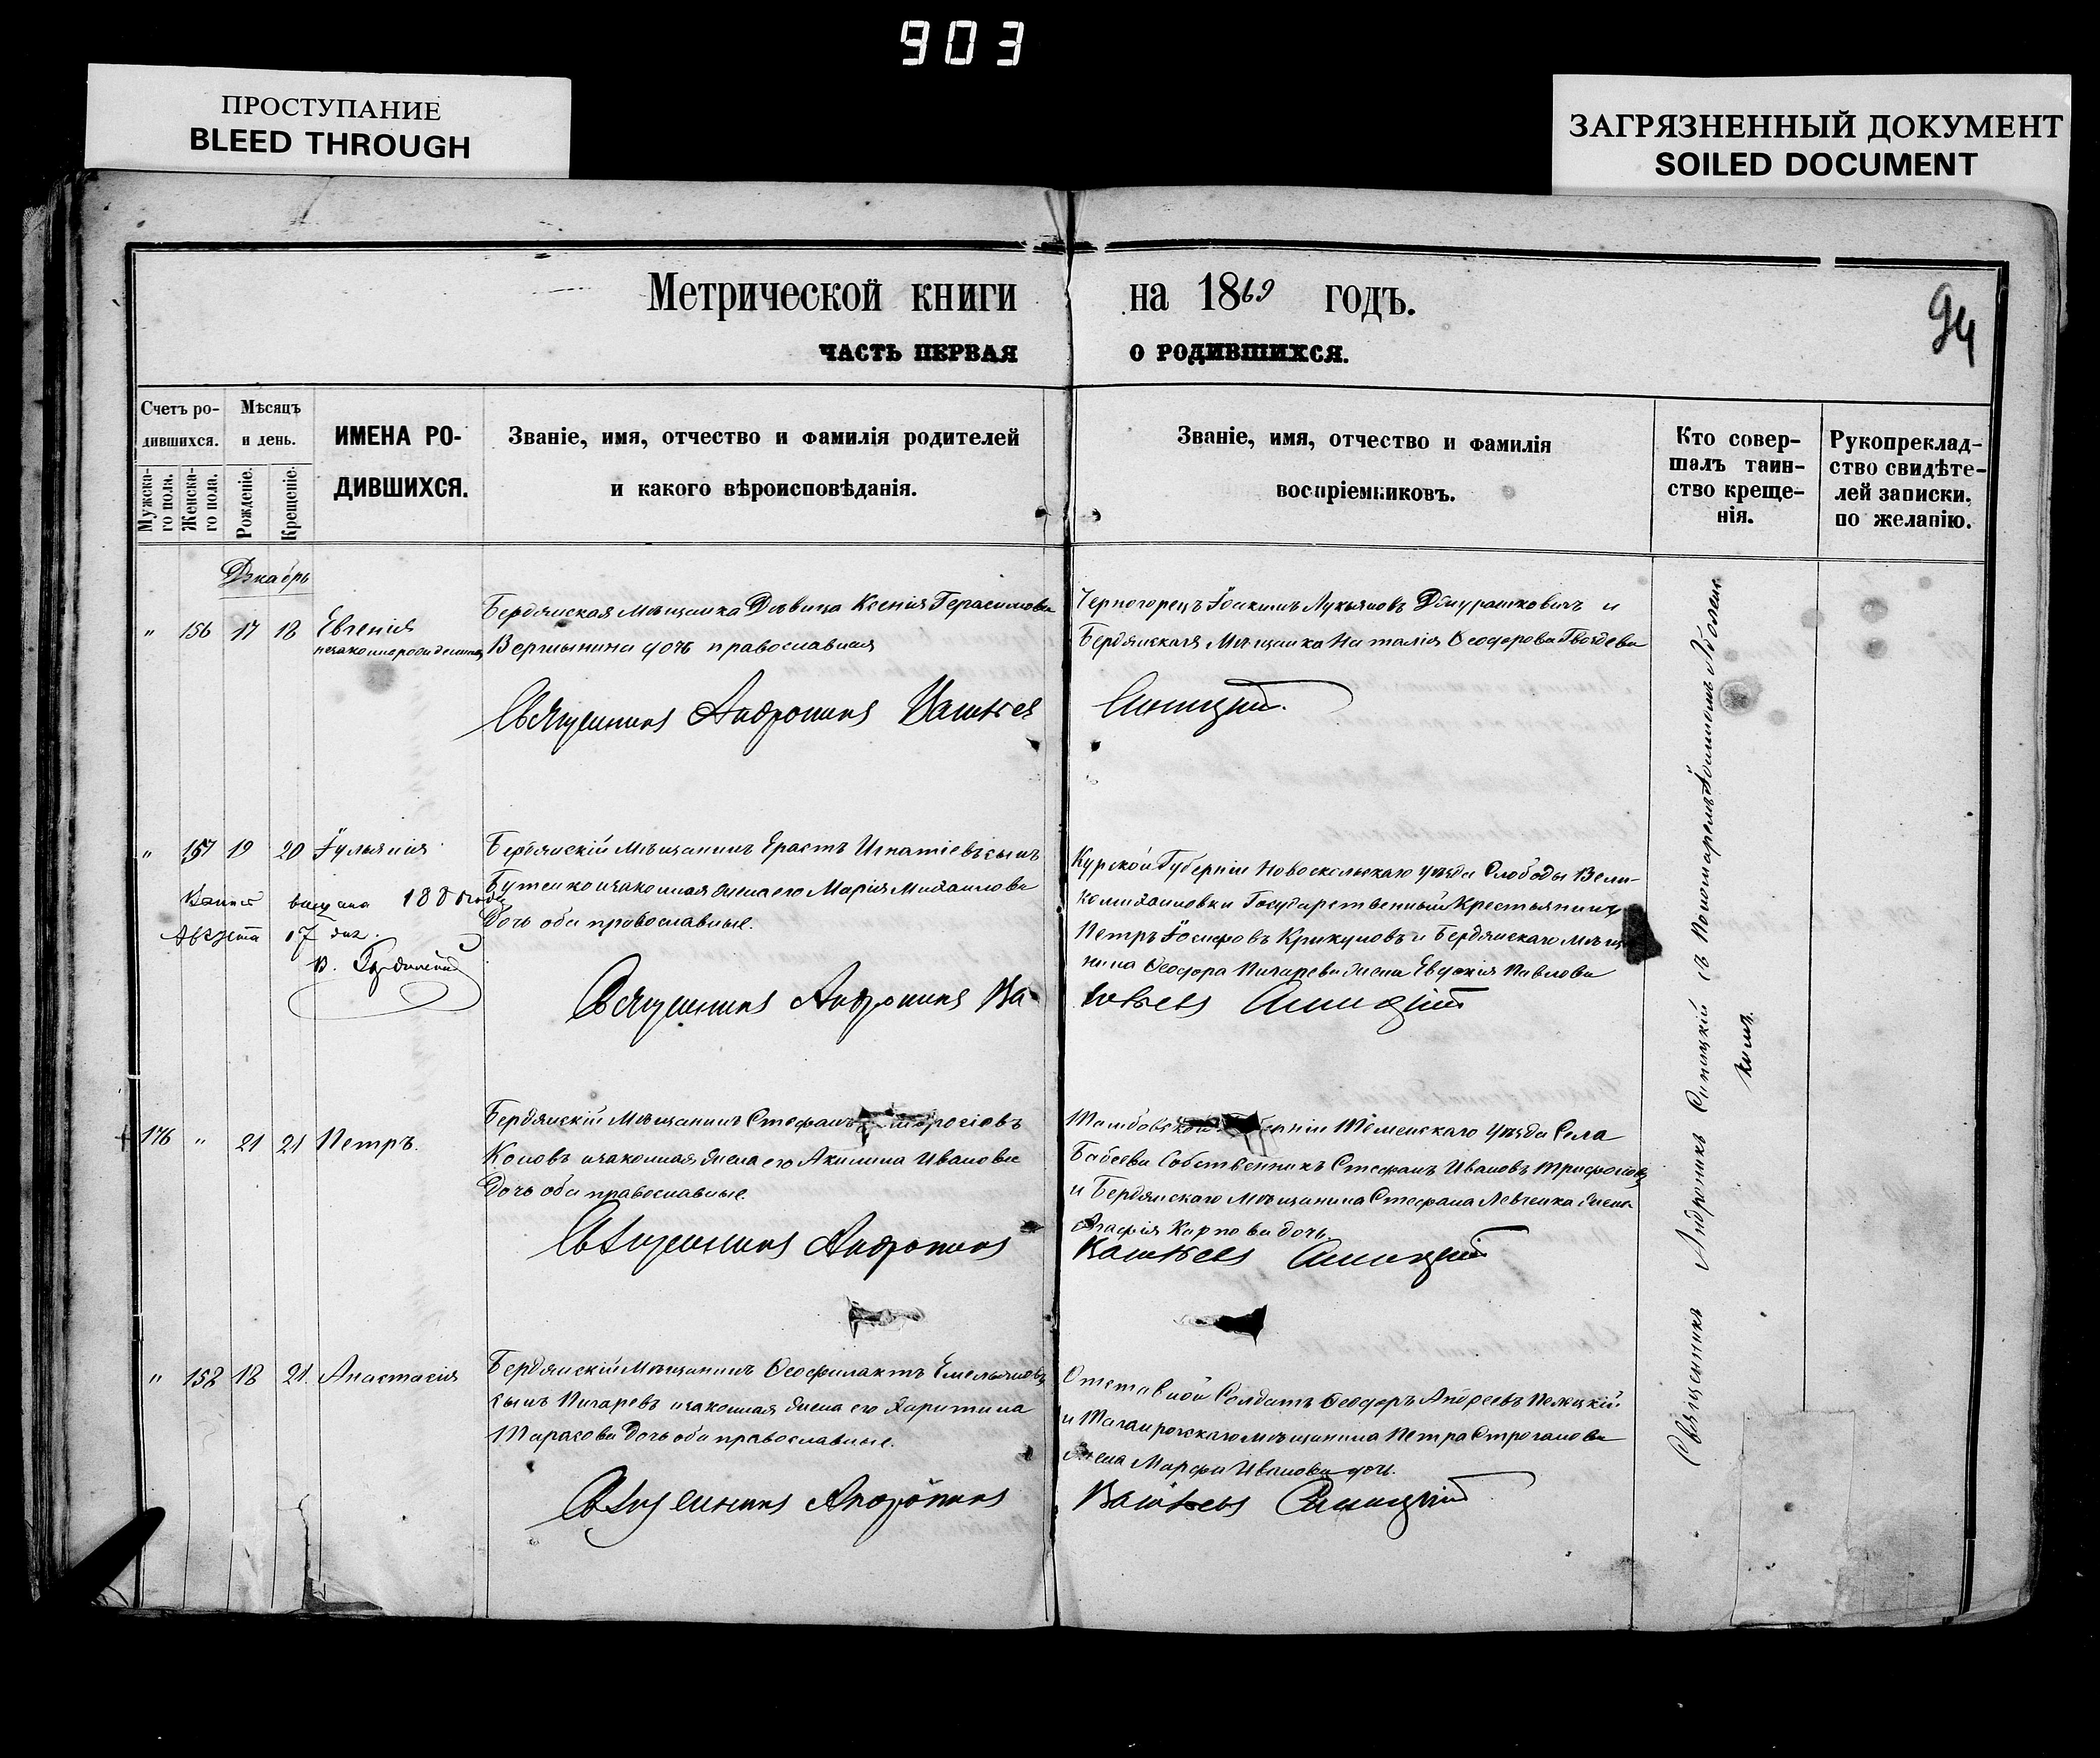 903
ПРОСТУПАНИЕ
BLEED THROUGH
ЗАГРЯЗНЕННЫЙ ДОКУМЕНТ
SOILED DOCUMENT
94
Метрической книги на 1869 годъ.
ЧАСТЬ ПЕРВАЯ О РОДИВШИХСЯ.
Счетъ ро-
дившихся.
Мужска-
го пола.
Женска-
го пола.
Мѣсяцъ
и день.
Рожденіе.
Крещеніе.
ИМЕНА РО-
ДИВШИХСЯ.
Званіе, имя, отчество и фамилія родителей
и какого вѣроисповѣданія.
Званіе, имя, отчество и фамилія
воспріемниковъ.
Кто совер-
шалъ таин-
ство креще-
нія.
Рукоприклад-
ство свидѣте-
лей записки.
по желанію.
Декабрь
" 156 17 18 Евгенія
незаконнорожденная
Бердянская Мѣщанка Дѣвица Ксенія Герасимова
Вершинина дочь православная
Черногорецъ Іоакимъ Лукьяновъ и
Бердянская Мѣщанка Наталія Ѳеодорова Гвоздева
Священникъ Андроникъ Синицкій.
" 157 19 20 Іуліанія
Августа 17 дня.
Бердянскій Мѣщанинъ Ерастъ Игнатіевъ сынъ
Бутенко и законная жена его Марія Михаилова
Дочь оба православные.
Курской Губерніи Новооскольскаго уѣзда Слободы Вели-
комихаиловки Государственный Крестьянинъ
Петръ Іосифовъ Крикуновъ и Бердянскаго Мѣща
нина Ѳеодора Пигарева жена Евдокія Павлова
Священникъ Андроникъ Синицкій
176 " 21 21 Петръ.
Бердянскій Мѣщанинъ Стефанъ
Коповъ и законная жена его Акилина Иванова
Дочь оба православные.
Тамбовской Уѣзда Села
Бабеева Собственникъ Стефанъ Ивановъ Трифоновъ
и Бердянскаго Мѣщанина Стефана Левченка жена
Агафія Карпова дочь.
Священникъ Андроникъ Синицкій
" 158 18 21. Анастасія
Бердянскій Мѣщанинъ Ѳеофилактъ Емельяновъ
сынъ Пигаревъ и законная жена его Харитина
Тарасова Дочь оба православные.
Отставной Солдатъ Ѳеодоръ Андреевъ
и Таганрогскаго Мѣщанина Петра Строганова
жена Марфа Иванова дочь.
Священникъ Андроникъ Синицкій
Священникъ Андроникъ Синицкій съ Пономаремъ Іоанномъ